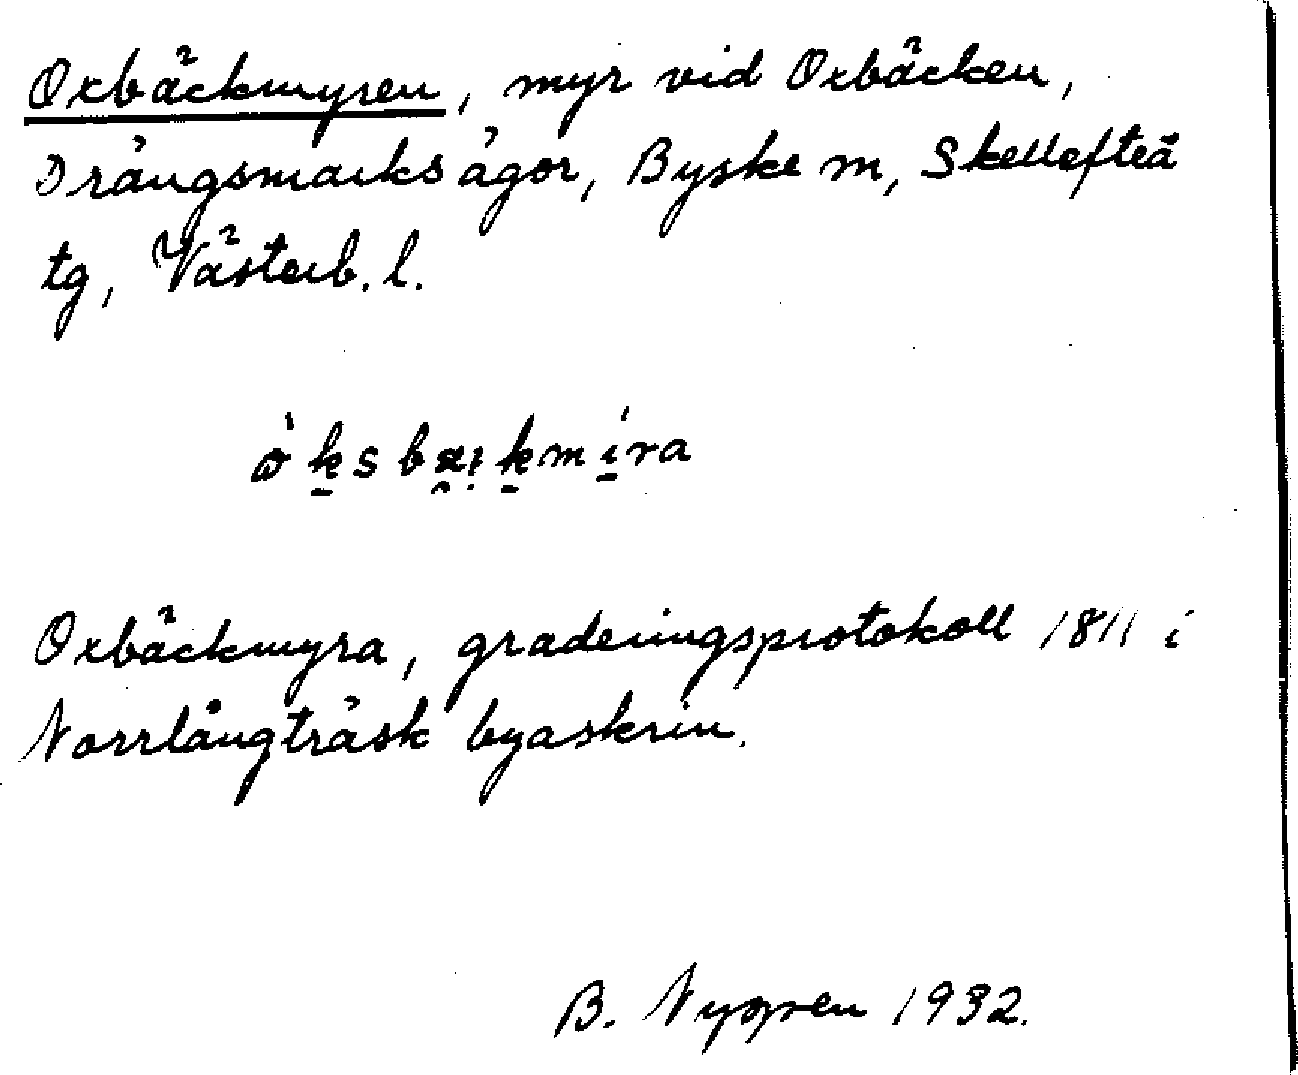 Oxbäckmyren, myr vid Oxbäcken,
Drängsmarks ägor, Byske sn, Skellefteå
tg, Västerb. l.
Oxbäckmyra, graderingsprotokoll 1811 i
Norrlångträsk byaskrin.
B. Nygren 1932.